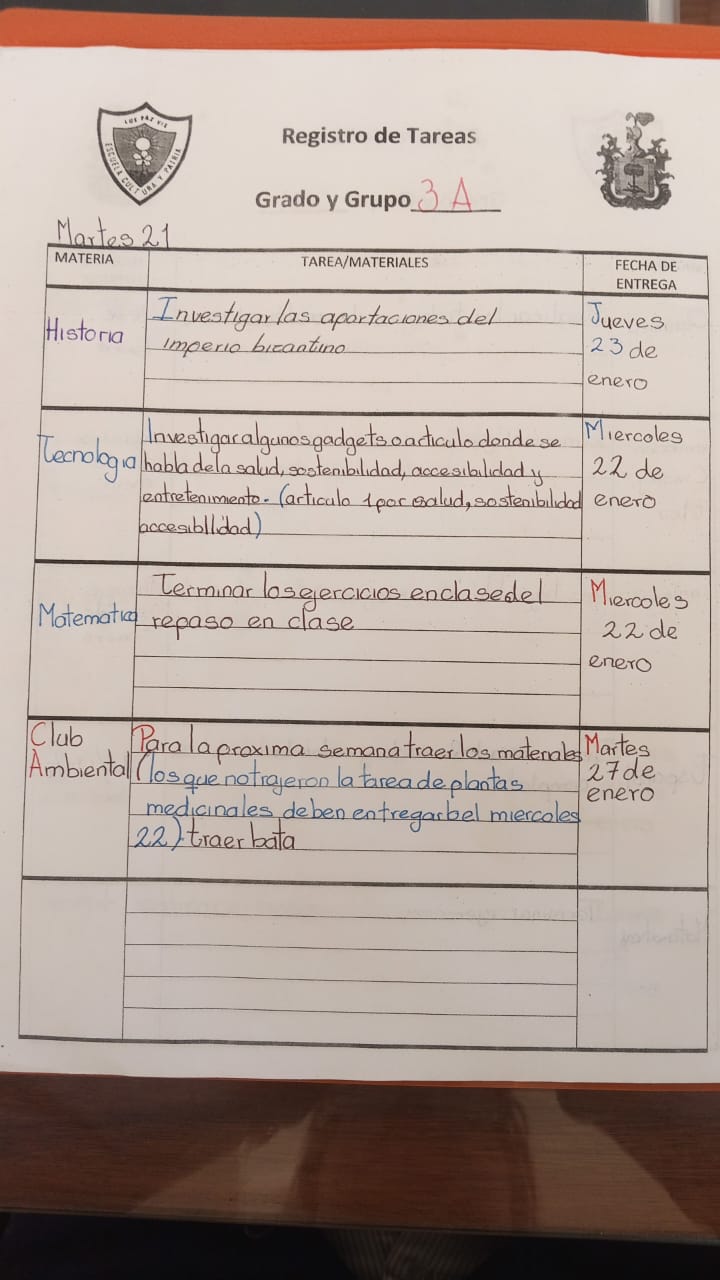 LUX PAX VIS
ESCUELA CULTURA Y PATRIA
Registro de Tareas
Grado y Grupo 3 A
Martes 21
MATERIA
TAREA/MATERIALES
FECHA DE
ENTREGA
Historia
Investigar las aportaciones del
imperio bicantino
Jueves
23 de
enero
Tecnologia
Investigar algunos gadgets o articulo donde se
habla de la salud, sostenibilidad, accesibilidad y
entretenimiento. (articulo 1 por salud, sostenibilidad
accesibilidad)
Miercoles
22 de
enero
Matematica
Terminar los ejercicios en clase del
repaso en clase
Miercoles
22 de
enero
Club
Ambiental
Para la proxima semana traer los materiales
(los que no trajeron la tarea de plantas
medicinales deben entregarbel miercoles
22) traer bata
Martes
27 de
enero